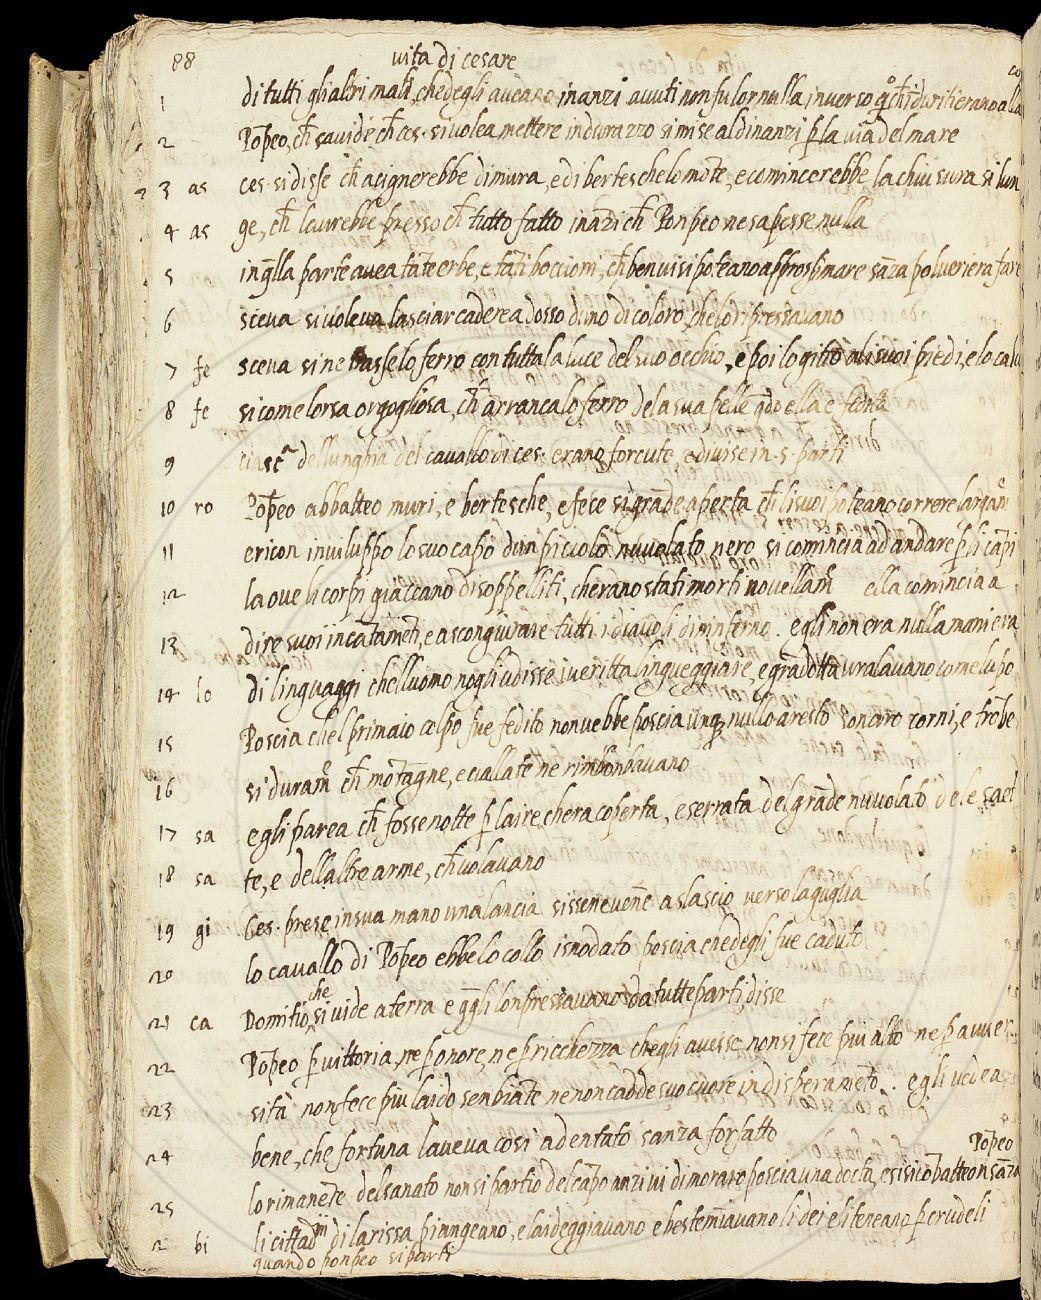 88 vita di cesare
1 di tutti gli altri mali, chedegli aveano inanzi avuti non fu lor nulla inverso q̊ ch̄ i duriti erano alla
2 Po͞peo, ch̄ savide ch̄ ces. si volea mettere in durazzo si mise al dinanzi p̱ la via del mare
3 as ces. si disse ch̄ acignerebbe di mura, e di berteschelo mōte, e comincerebbe la chiusura si lun
4 as ge, ch̄ laurebbe presso ch̄ tutto fatto ināzi ch̄ Ponpeo ne sapesse nulla
5 in q̄lla parte avea tāte erbe, e tāti boccioni, ch̄ ben visi poteano approssimare sāza polveriera fare
6 sceva si voleva lasciar cadere adosso duno di coloro, chelo inpressavano
7 fe sceva si ne trasse lo ferro con tutta la luce del suo occhio, e poi lo gitto alisuoi piedi, e lo calc
8 fe si come lorsa orgogliosa, ch̄ arranca lo ferro dela sua pelle q̄do ella e fedita
9 ciasc̄ª dellunghia del cavallo di ces. erano forcute, e divise in .5. parti
10 ro Po͞peo abbatteo muri, e bertesche, e fece si grāde aperta ch̄ li suoi poteano correre largam̄
11 ericon inviluppo lo suo capo dun picciolo nuvolato nero si comincia ad andare p̱ li cāpi
12 la ove li corpi giaceano disoppelliti, cherano stati morti novellam̄ ella comincia a
13 dire suoi incātamēti, e a scongiurare tutti i diavoli dininferno. egli non era nulla maniera
14 lo di linguaggi chelluomo nogli udisse i veritta lingueggiare, e grādotta urlavano come lupo
15 Poscia chel primaio colpo fue fedito non vebbe poscia unq̱ nullo aresto sonaro corni, e trōbe
16 si duram̄ ch̄ mōtagne, e vallate ne rimbonbavano
17 sa egli parea ch̄ fosse notte p̱ laire, chera coperta, e serrata del grāde nuvolato dele saet
18 sa te, e dellaltre arme, ch̄ volavano
19 gi Ces. prese in sua mano una lancia sissenevēne a slascio verso laguglia
20 lo cavallo di Po͞peo ebbe lo collo isnodato poscia chedegli fue caduto
21 ca Domitio che si vide a terra e q̄gli lonpressavano da tutte parti disse
22 Po͞peo p̱ vittoria, ne p̱ onore, ne p̱ ricchezza chegli avesse non si fece piu alto ne p̱ auuer
23 sita non fece piu laido senbiāte ne non cadde suo cuore in disperamēto. egli vedea
24 bene, che fortuna laveva cosi adentato sanza forfatto Po͞peo
25 lo rimanēte del sanato non si partio del cāpo anzi vi dimoraro poscia una dotta, e si si cōbatteon sāza
2 bi li cittadini di larissa piangeano, e laideggiavano e bestemiavano li dei e li teneano p̱ crudeli
quando ponpeo si parti